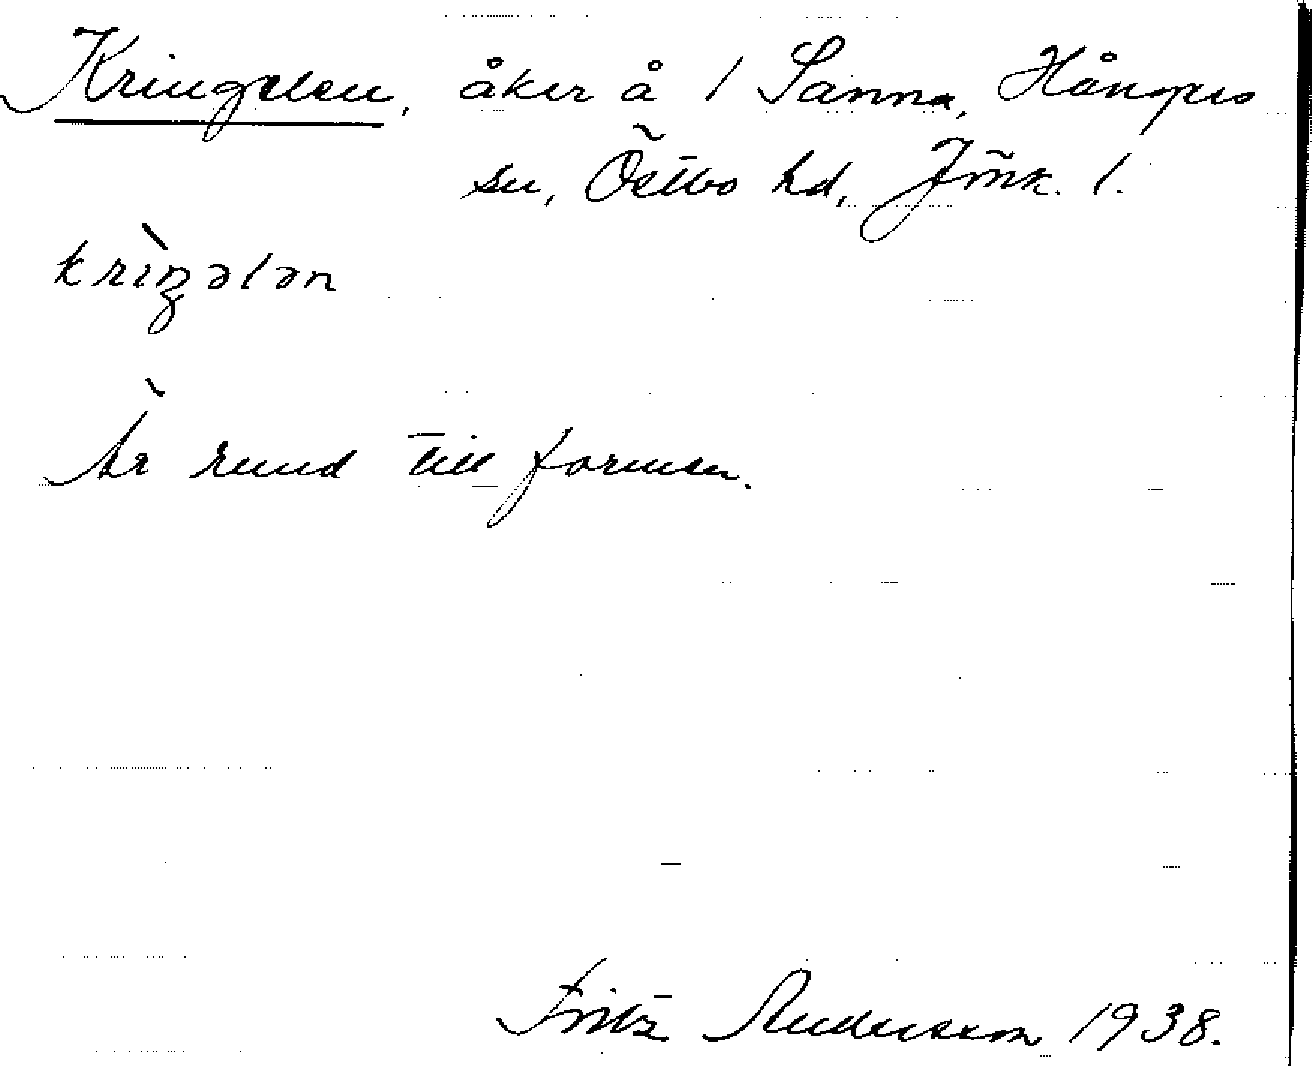 Kringelen, åker å 1 Sanna, Hångers
sn, Östbo hd, Jönk. l.
krìŋələn
Är rund till formen.
Fritz Andersson 1938.